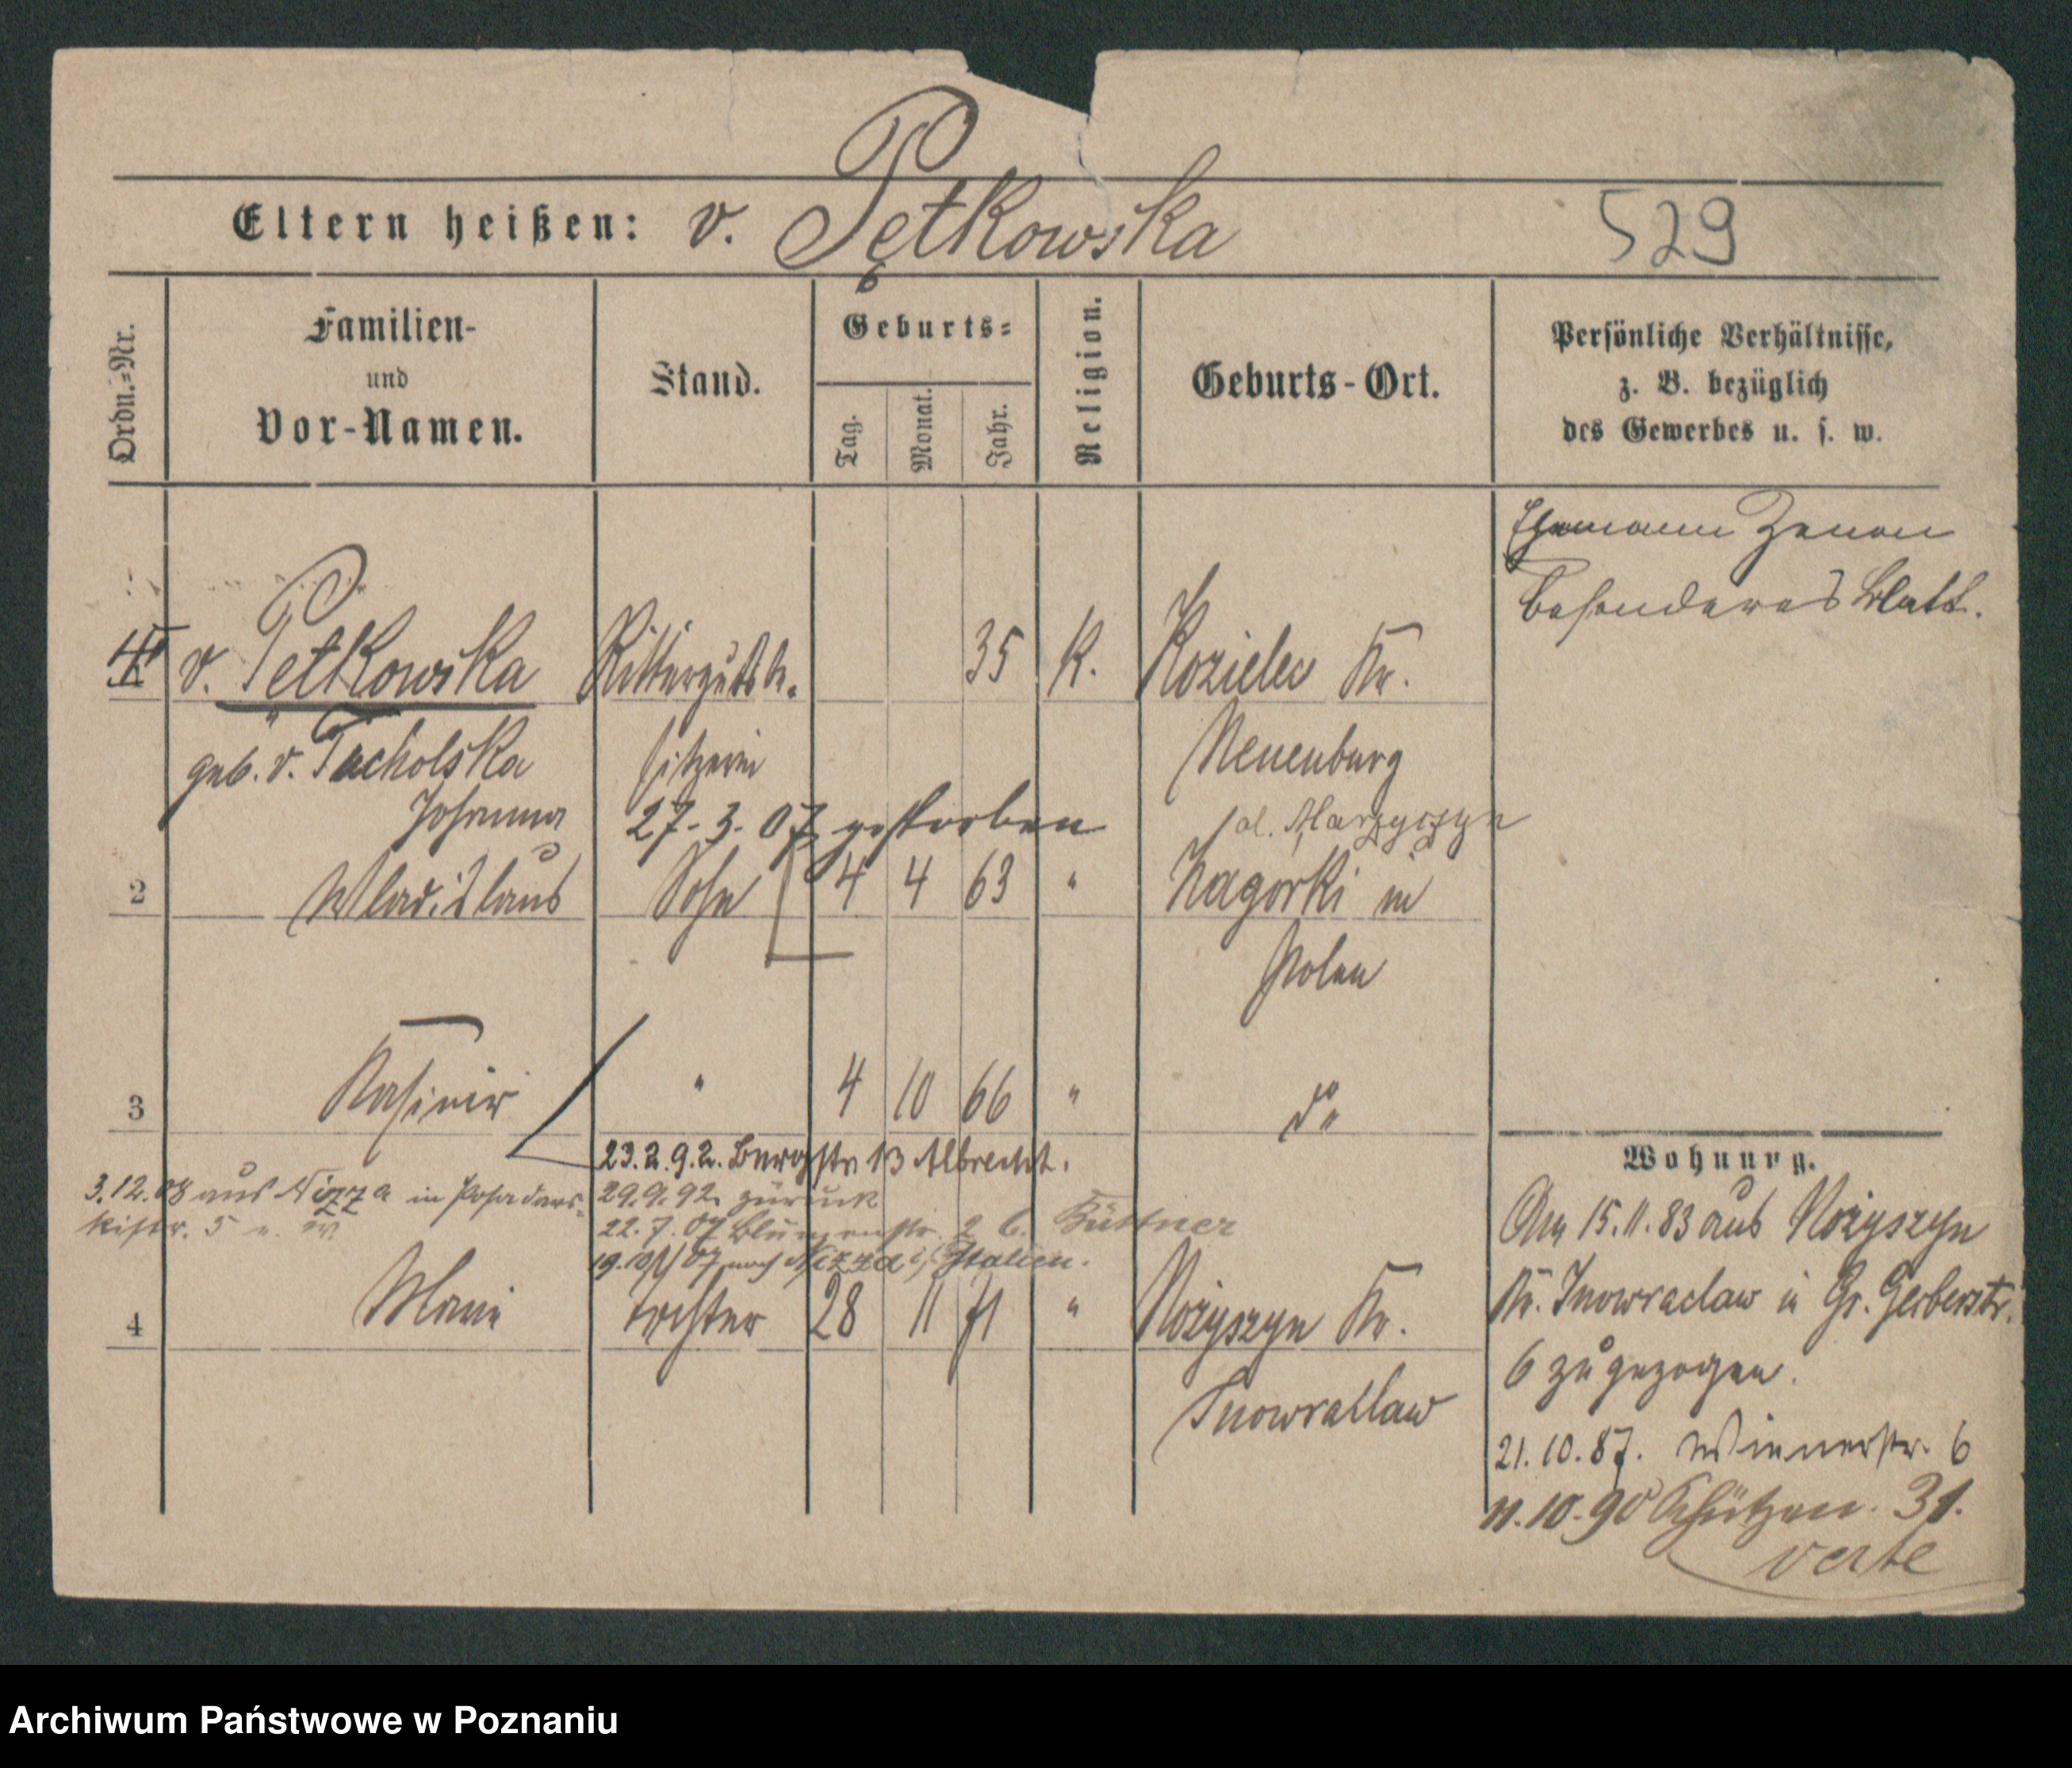 Eltern heißen: v. Pętkowska 529
Ordn.-Nr.
Familien-
und
Vor-Namen.
Stand.
Geburts-
Tag.
Monat.
Jahr.
Religion.
Geburts-Ort.
Persönliche Verhältnisse,
z. B. bezüglich
des Gewerbes u. s. w.
Ehemann Zenon
besonderes Blatt.
v. Pętkowska Rittergutsb. 35 K. Kozielec Kr.
geb. v. Tucholska sitzerin Neuenburg
Johanna 27.3.07 gestorben
2 Wladislaus Sohn 4 4 63 " Zagorki in
Polen
3 Kasimir " 4 10 66 " do
23.2.92. Bergstr. 13 Albrecht.
3.12.08 aus Nizza in Posadows-
kistr. 5
29.9.92 zurück
22.7.07 Blumenstr. 2 b. Büttner
19.10.07 nach Nizza i/Italien.
4 Marie Tochter 28 11 71 " Nożyszyn Kr.
Inowraclaw
Wohnung.
Am 15.11.83 aus Nożyszyn
Kr. Inowraclaw in Gr. Gerberstr.
6 zugezogen.
21.10.87. Wienerstr. 6
11.10.90 Schützen. 31.
verte
Archiwum Państwowe w Poznaniu